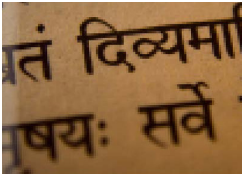 व्रतं दिव्यमा
षयः सर्वे